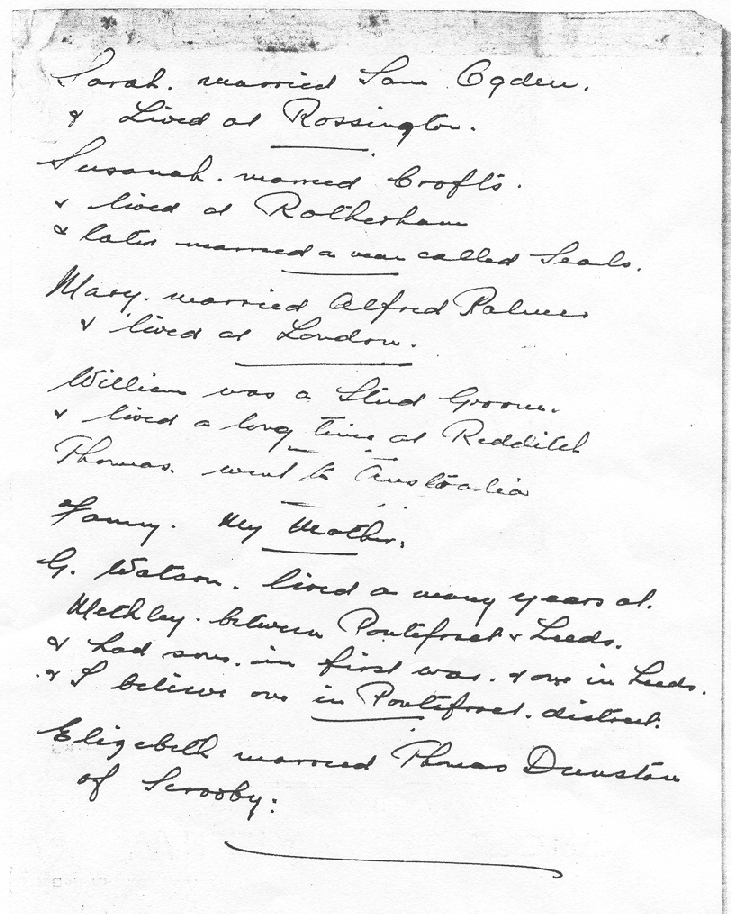 Sarah. married Sam Ogden.
& Lived at Rossington.
Susanah. married Crofts.
& lived at Rotherham
& later married a man called Seals.
Mary. married Alfred Palmer
& lived at London.
William was a Stud Groom.
& lived a long time at Redditch
Thomas. went to Australia
Fanny. My Mother.
G. Watson. lived a many years at.
Methley. between Pontefract & Leeds.
& had sons. in first war. & one in Leeds.
& I believe one in Pontefract. district.
Elizabeth married Thomas Dunston
of Scrooby: